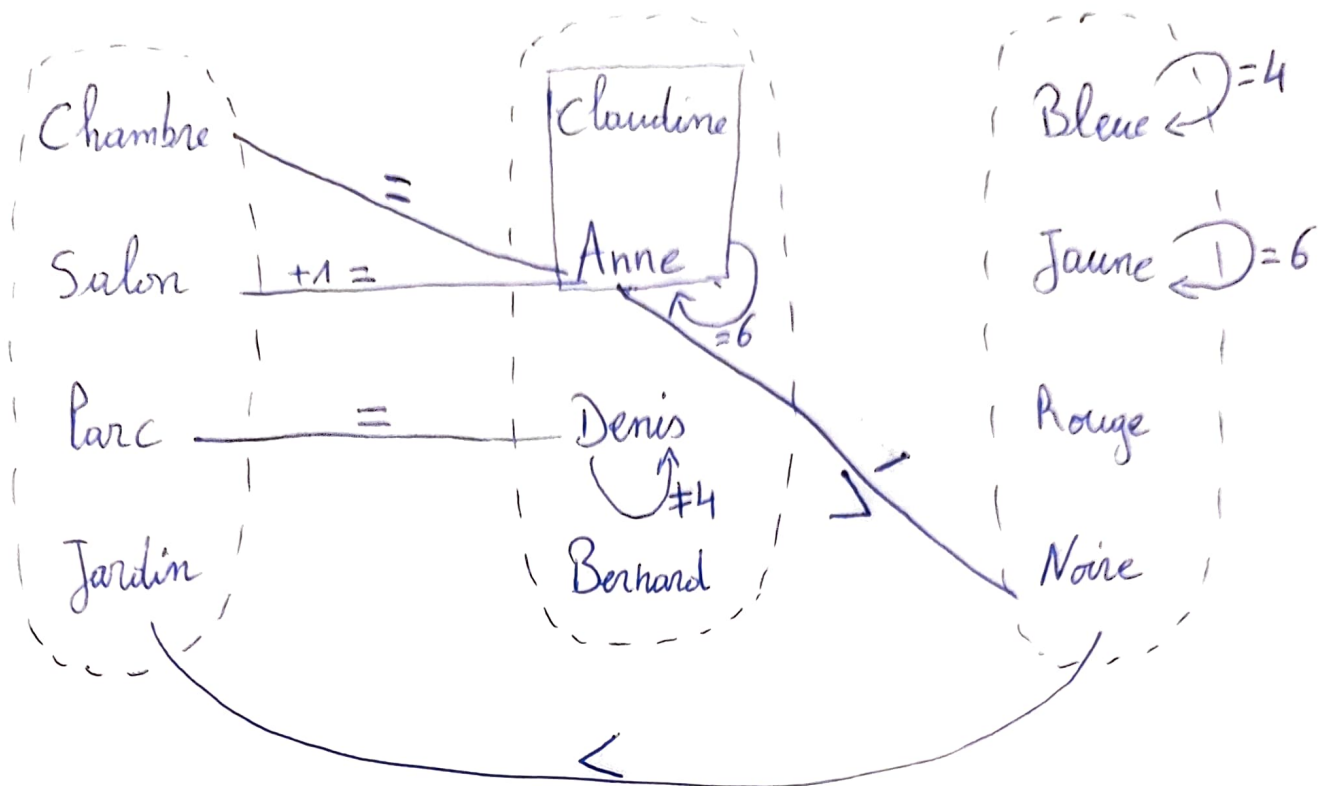 Chambre
Salon
Parc
Jardin
=
+1 =
=
Claudine
Anne
=6
Denis
≠4
Bernard
>
<
Bleue =4
Jaune =6
Rouge
Noire